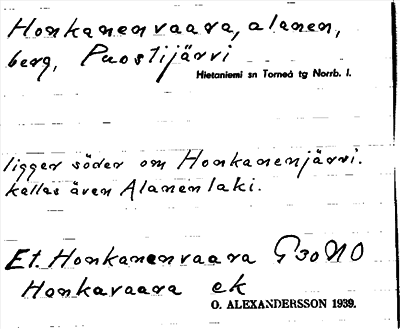 Honkanenvaara, alanen,
berg, Puostijärvi
Hietaniemi sn Torneå tg Norrb. l.
ligger söder om Honkanenjärvi.
kallas även Alanenlaki.
Et. Honkanenvaara G30NO
Honkavaara ek
O. ALEXANDERSSON 1939.